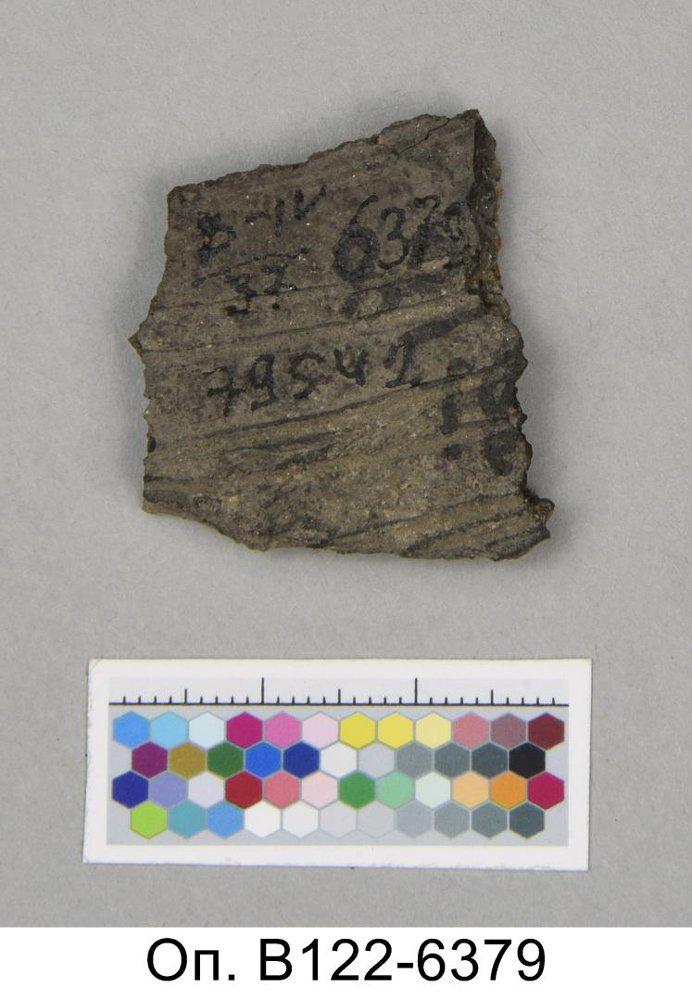 В-IV 6379
37
79541
Оп. В122-6379